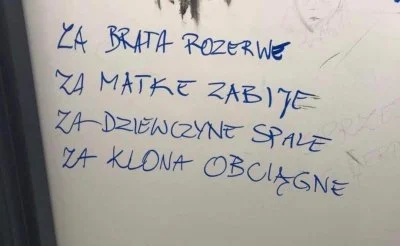 ZA BRATA ROZERWE
ZA MATKE ZABIJE
ZA DZIEWCZYNE SPALE
ZA KLONA OBCIĄGNE